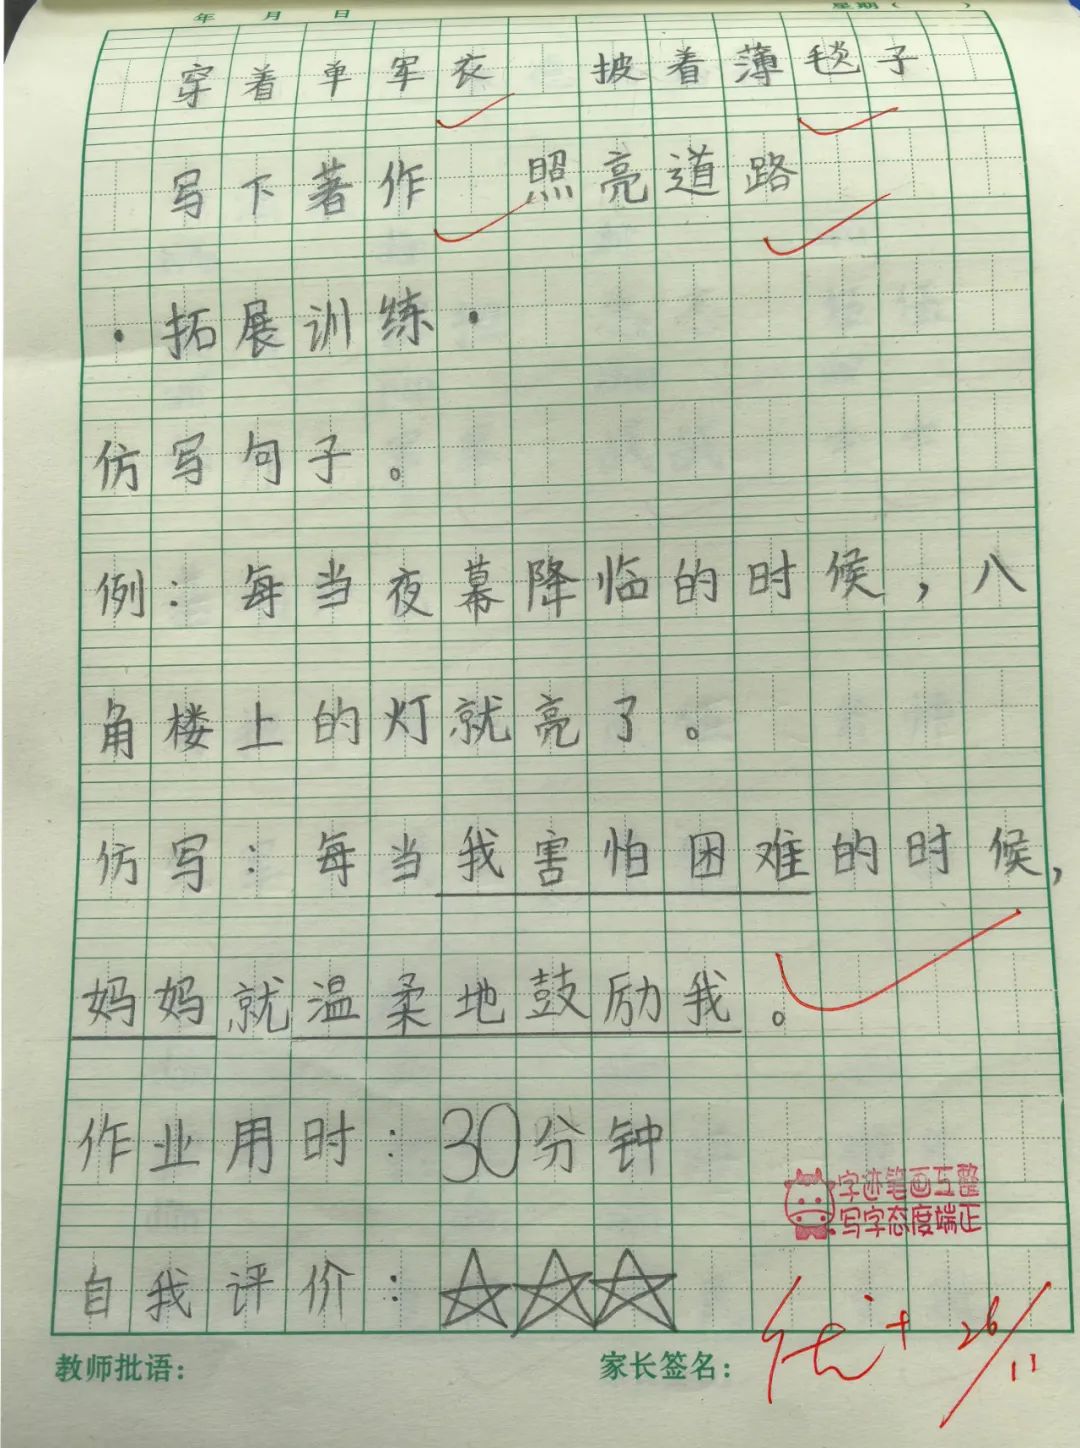 年 月 日 星期（ ）
穿着单军衣 披着薄毯子
写下著作 照亮道路
·拓展训练·
仿写句子。
例：每当夜幕降临的时候，八
角楼上的灯就亮了。
仿写：每当我害怕困难的时候，
妈妈就温柔地鼓励我。
作业用时：30分钟
字迹笔画工整
写字态度端正
自我评价：☆☆☆
优+ 26/11
教师批语： 家长签名：